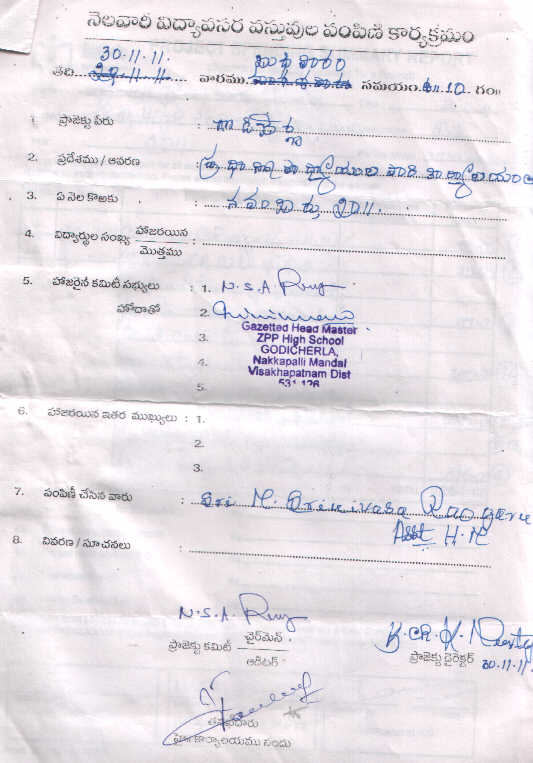 నెలవారి విద్యావసర వస్తువుల పంపిణీ కార్యక్రమం
30.11.11. బుధవారం
తేది........ వారము........ సమయం........10. గం॥
1. ప్రాజెక్టు పేరు : గొడిచెర్ల
2. ప్రదేశము / ఆవరణ : ప్రధానోపాధ్యాయుల వారి కార్యాలయం
3. ఏ నెల కొఱకు : నవంబరు 2011.
4. విద్యార్థుల సంఖ్య హాజరయిన :
మొత్తము
5. హాజరైన కమిటీ సభ్యులు : 1. N.S.A.
హోదాతో 2.
Gazetted Head Master
3. ZPP High School
GODICHERLA,
4. Nakkapalli Mandal
Visakhapatnam Dist
5. 531 126
6. హాజరయిన ఇతర ముఖ్యులు : 1.
2.
3.
7. పంపిణీ చేసిన వారు : Sri M. Srinivasa Rao garu
Asst H.M
8. వివరణ / సూచనలు :
N.S.A.
ప్రాజెక్టు కమిటీ ఛైర్మెన్
ఆడిటర్
ప్రాజెక్టు డైరెక్టర్ 30.11.11
కార్యాలయము నందు